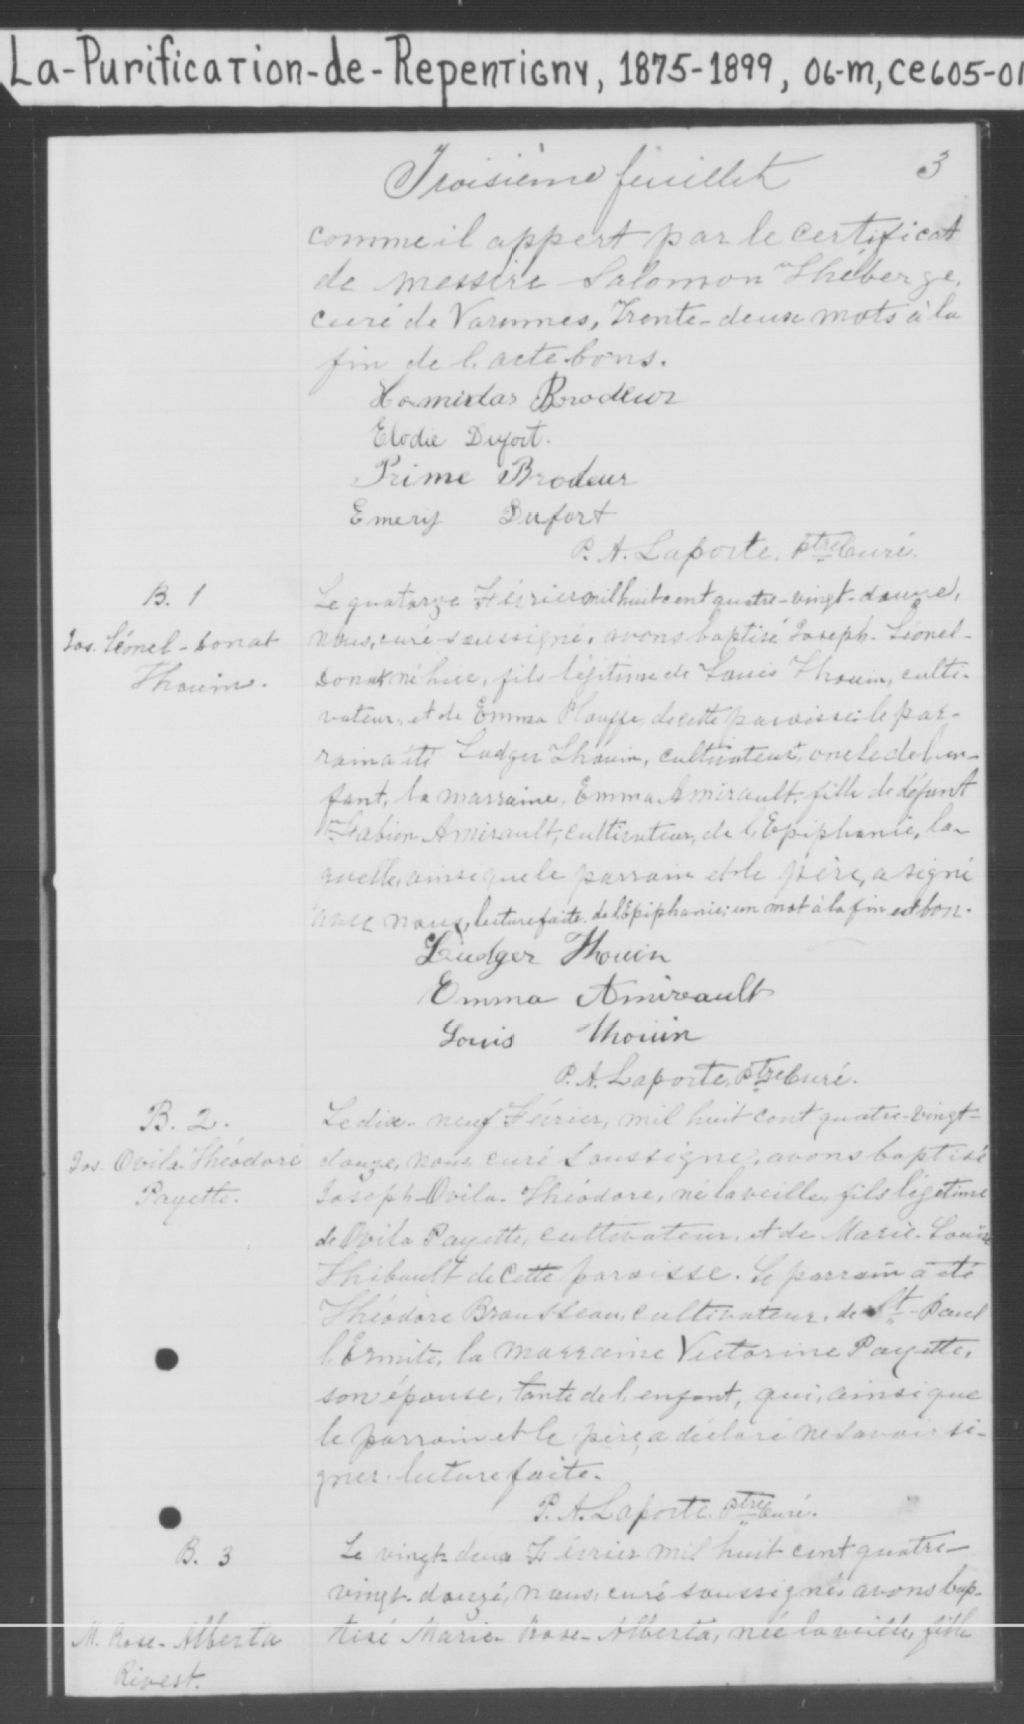 La-Purification-de-Repentigny, 1875-1899, 06-m, ce605-01
Troisième feuillet 3
comme il appert par le certificat
de messire Salomon Théberge,
curé de Varennes, Trente-deux mots à la
fin de l'acte bons.
Brodeur
Elodie Dufort.
Prime Brodeur
Emery Dufort
P. A. Laporte. Ptre Curé.
B. 1
Jos. Léonel-Donat
Thouin.
Le quatorze Février mil huit cent quatre-vingt-douze,
nous, curé soussigné, avons baptisé Joseph-Léonel-
Donat né hier, fils légitime de Louis Thouin, culti-
vateur, et de Emma Plouffe, de cette paroisse: le par-
rain a été Ludger Thouin, cultivateur, oncle de l'en-
fant, la marraine, Emma Amirault, fille de défunt
Fabien Amirault, cultivateur, de l'Epiphanie, la-
quelle, ainsi que le parrain et le père, a signé
avec nous, lecture faite. de l'Epiphanie; un mot à la fin est bon.
Ludger Thouin
Emma Amireault
Louis Thouin
P. A. Laporte, Ptre Curé.
B. 2.
Jos. Ovila Théodore
Payette.
Le dix-neuf Février, mil huit cent quatre-vingt-
douze, nous, curé soussigné, avons baptisé
Joseph-Ovila-Théodore, né la veille, fils légitime
de Ovila Payette, cultivateur, et de Marie-Louise
Thibault de cette paroisse. Le parrain a été
Théodore Brousseau, cultivateur, de St-Paul
l'Ermite, la marraine Victorine Payette,
son épouse, tante de l'enfant, qui, ainsi que
le parrain et le père, a déclaré ne savoir si-
gner. lecture faite.
P. A. Laporte. Ptre Curé.
B. 3
M. Rose-Alberta
Rivest.
Le vingt-deux Février mil huit cent quatre-
vingt-douze, nous, curé soussigné avons bap-
tisé Marie-Rose-Alberta, née la veille, fille